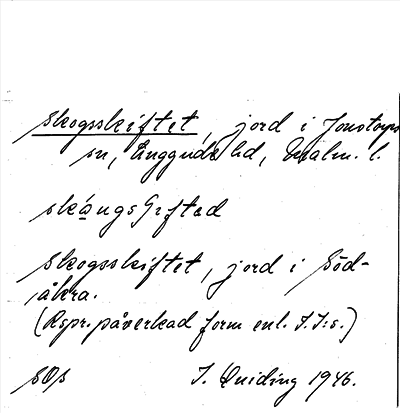 Skogsskiftet, jord i Jonstorps
sn, Luggude hd, Malm. l.
skångsȷıfted
Skogsskiftet, jord i Söd-
åkra.
(Rspr. påverkad form enl. I.I:s.)
SOs I. Quiding 1946.